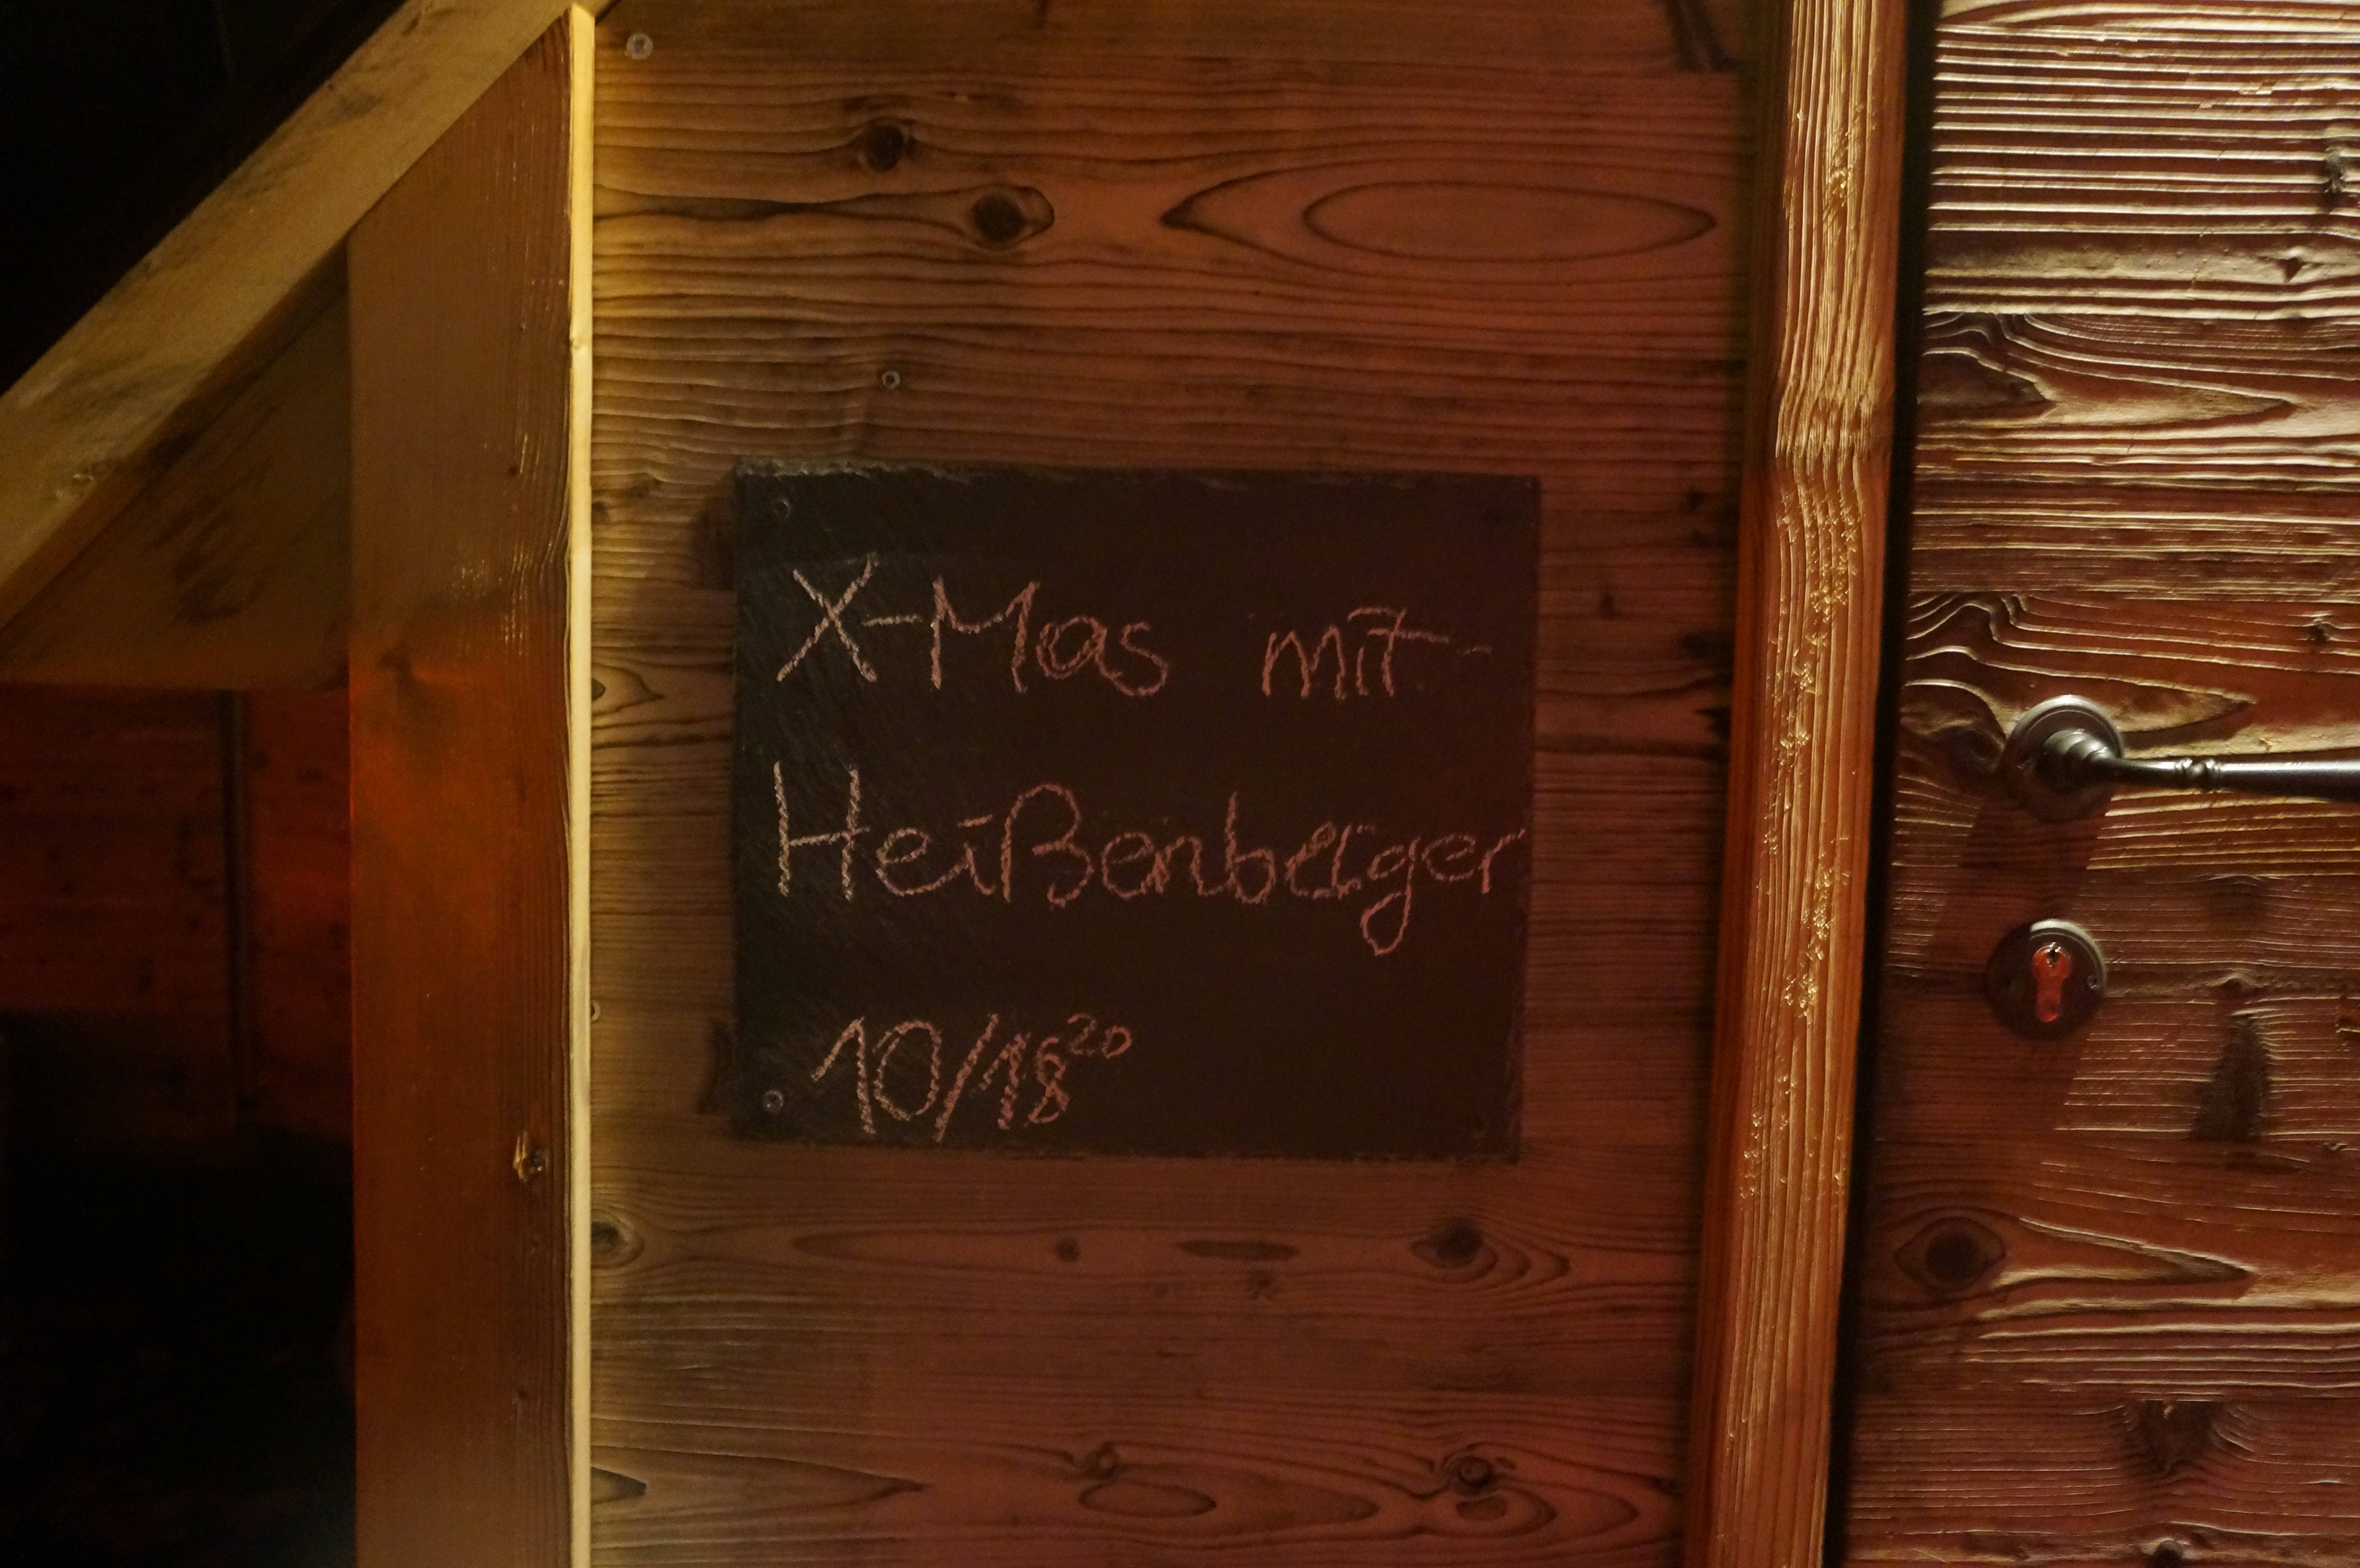 X-Mas mit
Heißenberger
10/18²⁰